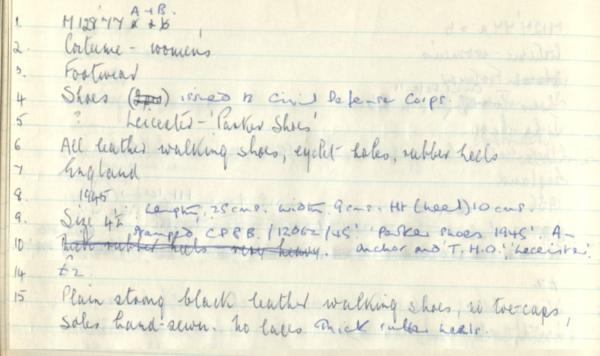 A + B.
1. M128'77 a + b
2. Costume - women's
3. Footwear
4 Shoes issued to Civil Defense Corps.
5 ? Leicester - 'Parker Shoes'
6 All leather walking shoes, eyelet holes, rubber heels
7 England
8. 1945
9. Size 4½ Length, 25 cms. width 9 cms. Ht (heel) 10 cms.
stamped C.P.P.B. /12062/45 'Parker Shoes 1945'. A-
10 Thick rubber heels very heavy. anchor and T.H.O. 'Leicester'
14 £2
15 Plain strong black leather walking shoes, no toe-caps,
Soles hand-sewn. No laces Thick rubber heels.